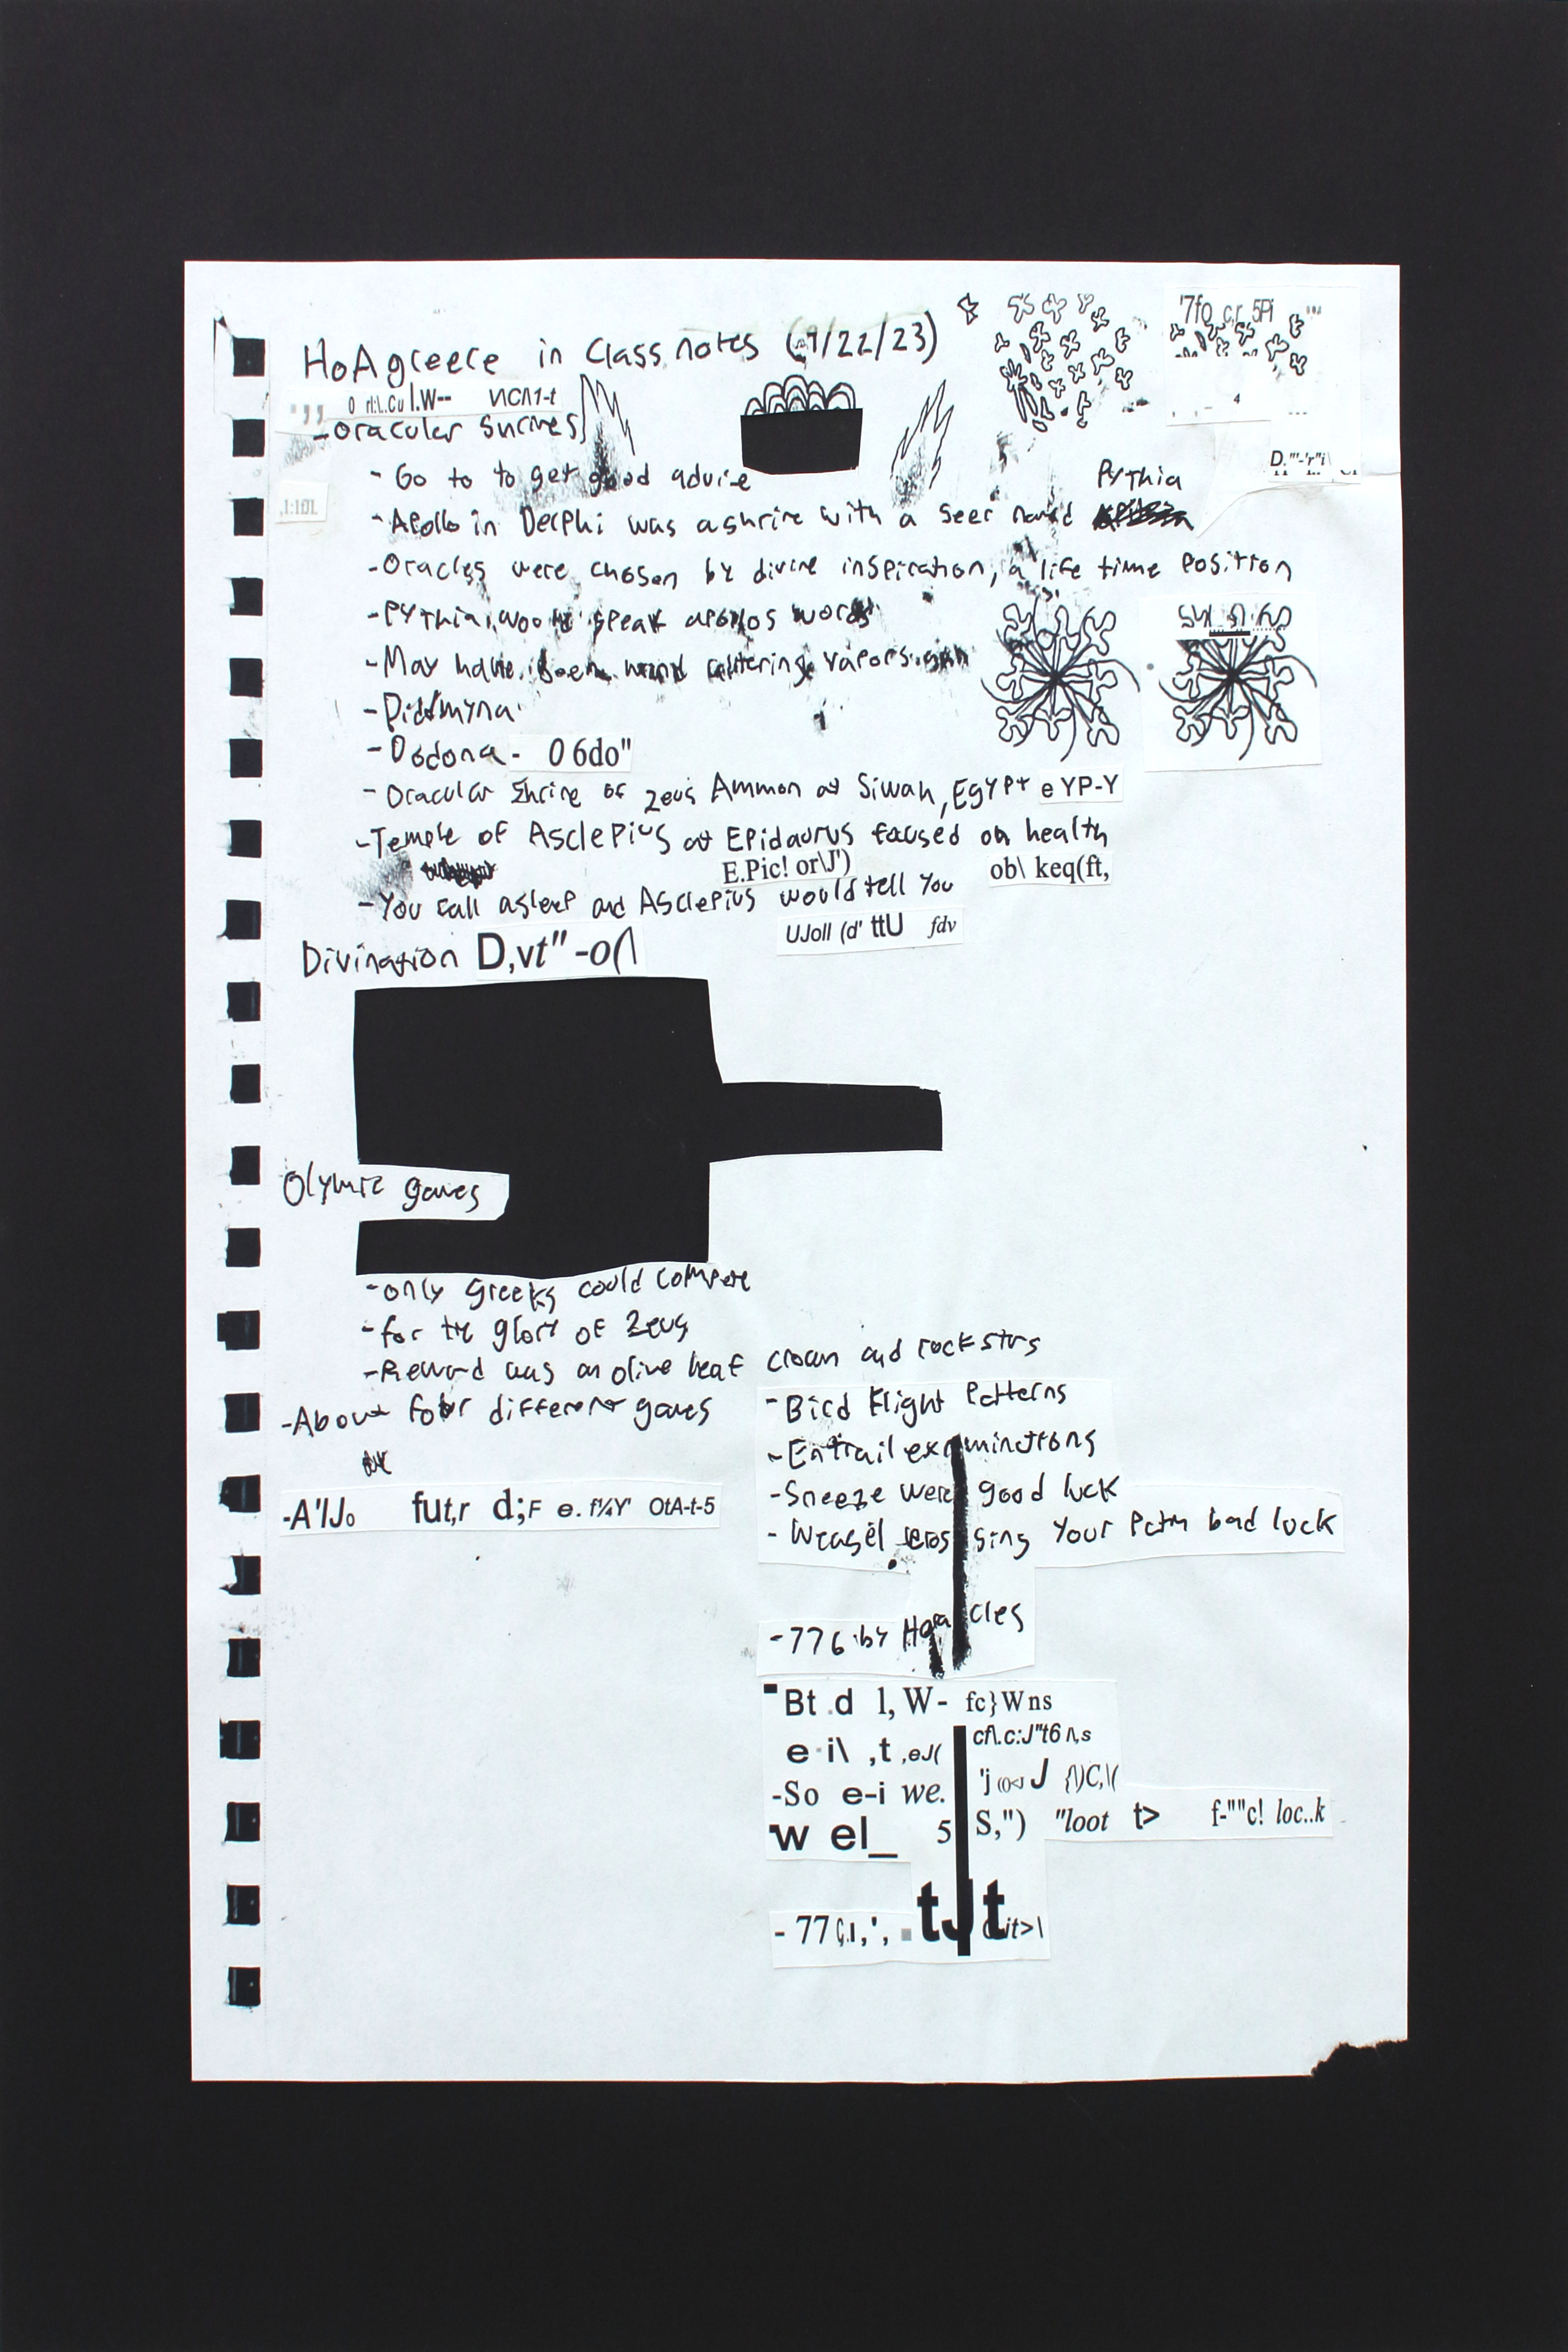 HoA greece in class notes (9/22/23)
'7fo c,r, 5Pi
-Oracular Shrines
- Go to to get good advice
Pythia
- Apollo in Delphi was a shrine with a seer named
-Oracles were chosen by divine inspiration, a life time position
-Pythia would speak apollos words
-May have been mind altering vapors
-Didimyna
-Dodona - 0 6do"
- Oracular Shrine of Zeus Ammon at Siwah, Egypt e YP-Y
-Temple of Asclepius at Epidaurus focused on health
E.Pic! or\J') ob\ keq(ft,
-You fall asleep and Asclepius would tell you
UJoll (d' ttU fdv
Divination D,vt" -o(\
Olympic games
-only Greeks could compete
-for the glory of Zeus
-Reward was an olive leaf crown and rockstars
-About four different games
-A'/J0 fut,r d;F e. f¼Y' OtA-t-5
-Bird flight patterns
-Entrail examinations
-Sneeze were good luck
- Weasel crossing your path bad luck
-776 by Heracles
Bt .d l, W- fc}Wns
e i\ ,t ,eJ( cf\.c:J"t6 /\,s
-So e-i we. 'j J {\)C,\(
w el_ 5 S,") "loot t> f-""c! loc..k
- 77 tJt it>\